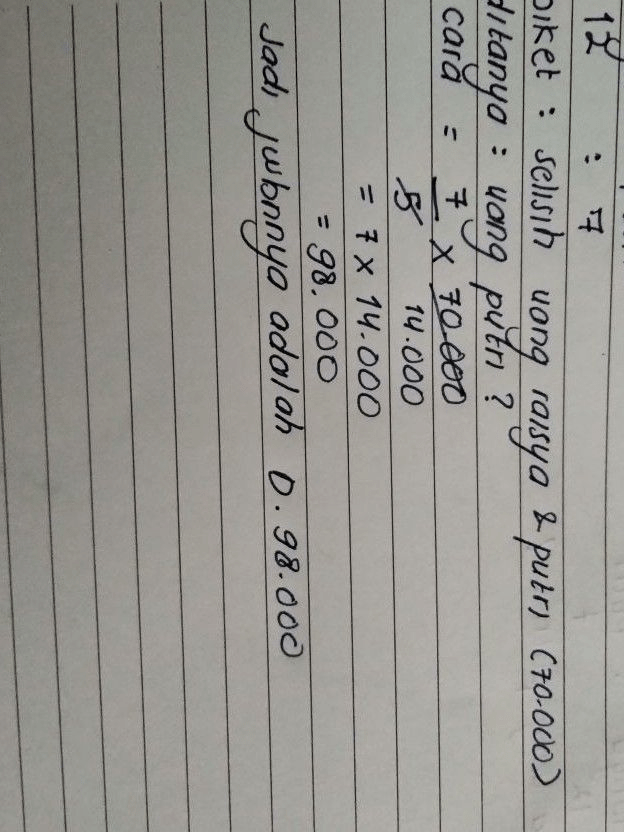 12 : 7
diket : selisih uang raisya & putri (70.000)
ditanya : uang putri ?
cara = 7 x 70.000
5 14.000
= 7 x 14.000
= 98.000
Jadi jwbnnya adalah D. 98.000